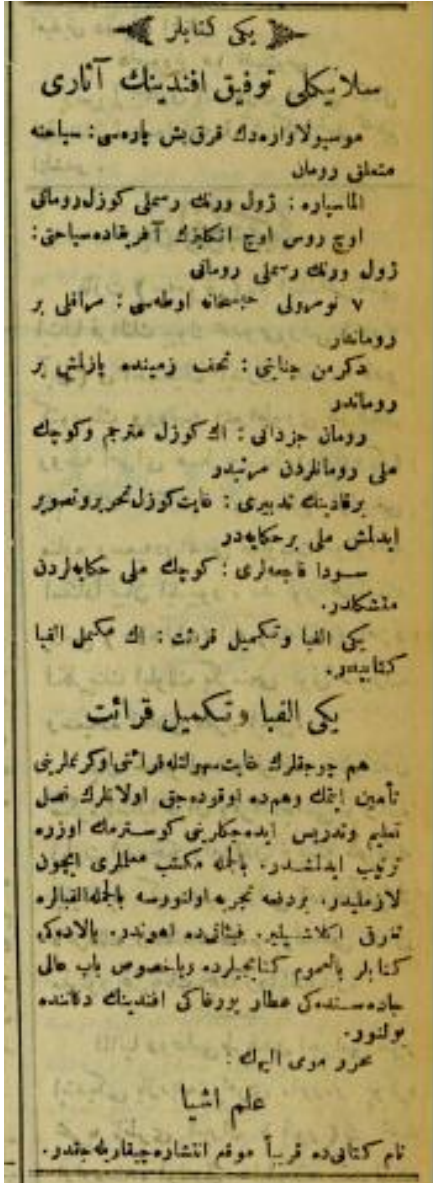 یكی كتابلر
سلانیكلی توفیق افندینك آثاری
موسیولاواره‌دك قرق بش پاره‌سی : سیاحته
متعلق رومان
الماسپاره : ژول ورنك رسملی كوزل رومانی
اوچ روس اوچ انكلیزك آفریقاده سیاحتی :
ژول ورنك رسملی رومانی
۷ نومرولی حبسخانه اوطه‌سی : مراقلی بر
روماندر
دكرمن جنایتی : تحف زمینده یازلمش بر
روماندر
رومان جزدانی : اك كوزل مترجم وكوچك
ملی رومانلردن مرتبدر
برقادینك تدبیری : غایت كوزل تحریر و تصویر
ایدلمش ملی بر حكایه‌در
سودا فاجعه‌لری : كوچك ملی حكایه‌لردن
متشكلدر.
یكی الفبا وتكمیل قرائت : اك مكمل الفبا
كتابیدر.
یكی الفبا و تكمیل قرائت
هم چوجقلرك غایت سهولتله قرائتی اوكرنملرینی
تأمین ایتمك وهم‌ده اوقوده‌جق اولانلرك نصل
تعلیم وتدریس ایده‌جكلرینی كوسترمك اوزره
ترتیب ایدلمشدر. بالجمله مكتب معلملری ایچون
لازملیدر، بردفعه تجربه اولنورسه بالجمله الفبالره
تفوقی اكلاشیلیر. فیئاتی‌ده اهوندر. بالاده‌كی
كتابلر بالعموم كتابجیلرده وباخصوص باب عالی
جاده‌سنده‌كی عطار یورغاكی افندینك دكاننده
بولنور.
محرر مومی الیهك :
علم اشیا
نام كتابی‌ده قریباً موقع انتشاره چیقاریله‌جقدر.